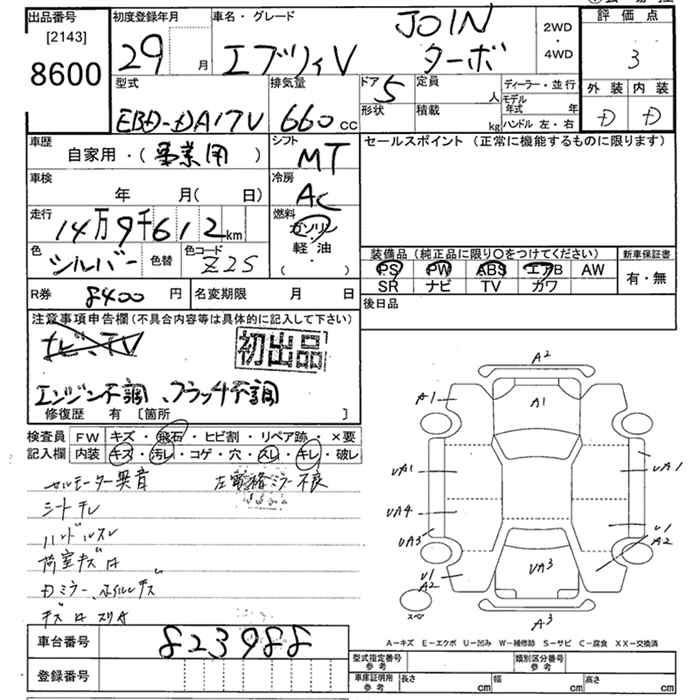 出品番号 初度登録年月 車名・グレード JOIN 2WD ・ 4WD 評価点
[2143] 29 月 エブリィV ターボ 3
8600
型式 排気量 ドア 5 定員 人 ディーラー・並行 外装 内装
EBD-DA17V 660 cc 形状 積載 kg モデル年式 年 D D
ハンドル 左・右
車歴 自家用・(事業用) シフト MT セールスポイント (正常に機能するものに限ります)
車検 年 月( 日) 冷房 AC
走行 14万9千612km 燃料 ガソリン
軽・油
( ・ )
色 シルバー 色替 色コード Z2S
装備品 (純正品に限り〇をつけてください) 新車保証書
PS PW ABS エアB AW 有・無
SR ナビ TV カワ
R券 8400 円 名変期限 月 日 後日品
注意事項申告欄(不具合内容等は具体的に記入して下さい)
ナビ、TV 初出品
エンジン不調、クラッチ不調
修復歴 有 [箇所 ]
検査員 FW キズ・飛石・ヒビ割・リペア跡・×要
記入欄 内装 キズ・汚レ・コゲ・穴・スレ・キレ・破レ
セルモーター異音 左電格ミラー不良
シートキレ
ハンドルスレ
荷室キズ大
Dミラー、ホイルキズ
A2
A1 A1
UA1 UA1
UA4
UA3 U1 A2
U1 A2 UA3
スペア A3
A−キズ E−エクボ U−凹み W−補修跡 S−サビ C−腐食 XX−交換済
車台番号 823988
登録番号
型式指定番号 参考 類別区分番号 参考
車庫証明用 参考 長さ cm 幅 cm 高さ cm